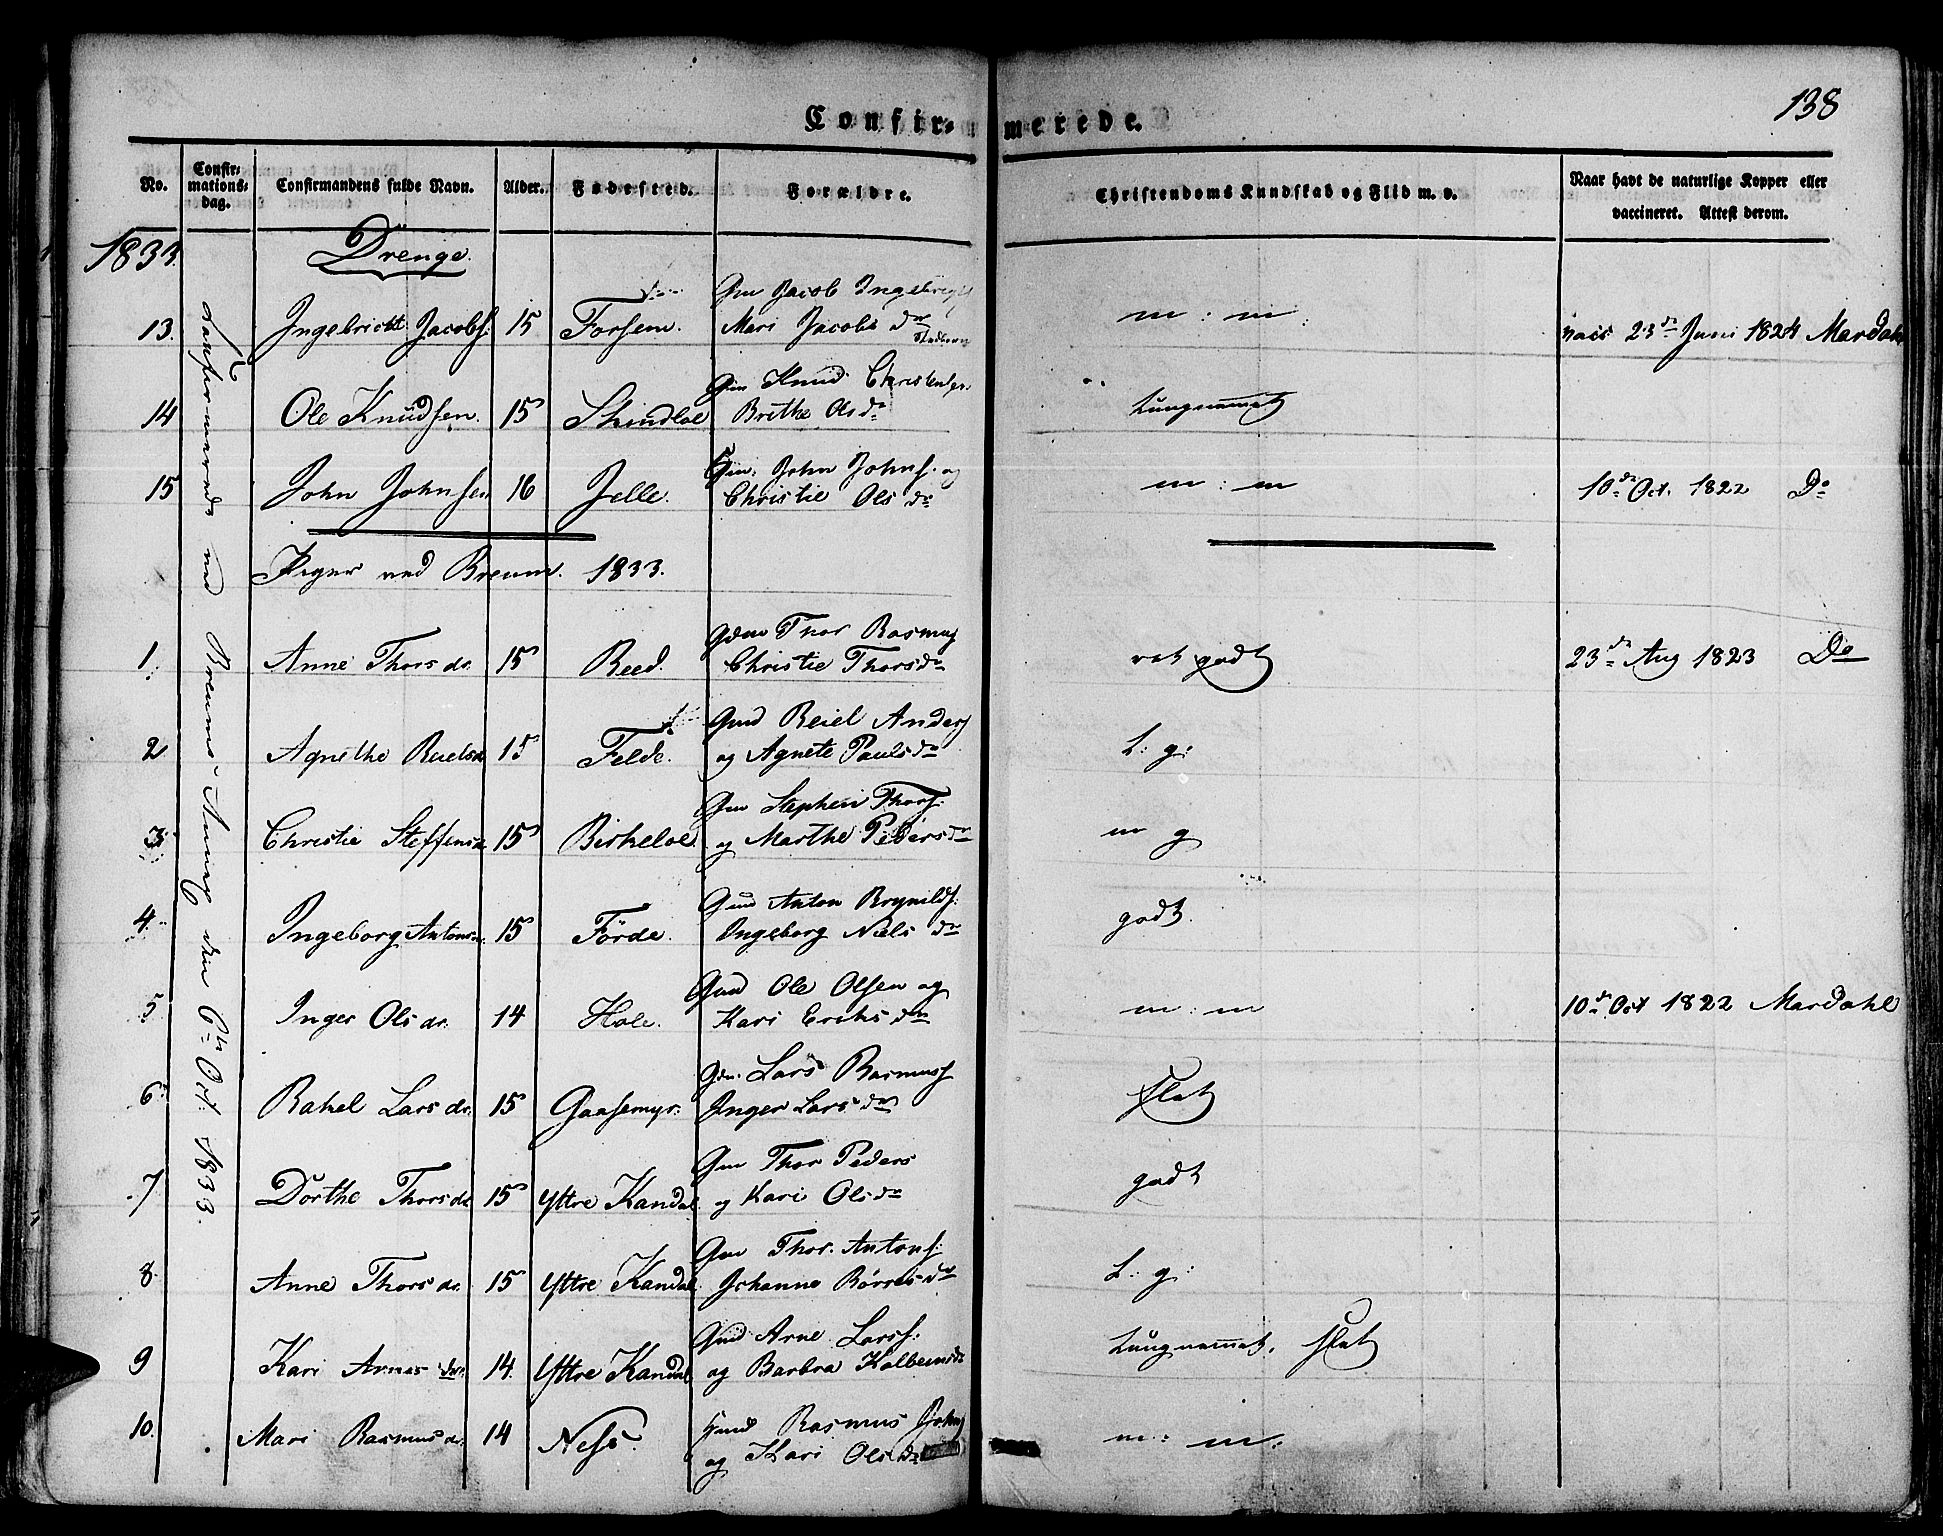 138
Confirmerede.
No. Confirmationsdag. Confirmandens fulde Navn. Alder. Fødested. Forældre. Christendoms Kundskab og Flid m. v. Naar havt de naturlige Kopper eller vaccineret. Attest derom.
1833. Drenge.
Confirmerede ved Breums den 6te Oct. 1833.
Gm Jacob Ingebrigts
13. Ingebrictt Jacobs. 15 Forsem. Mari Jacobs dr m : m : vacc 23de Juni 1824 Mardahl
Gm Knud Christens.
14 Ole Knudsen. 15 Brithe Olsdr tungnemmet
Gm. John Johns. og
15 John Johnsen 16 Jelle. Christie Ols dr m : m 10de Oct. 1822 Do
Piger ved Breum. 1833.
Gdm Thor Rasmus
1. Anne Thors dr. 15 Reed. Christie Thorsdr ret godt 23de Aug 1823 Do
Gmd Reiel Anders
2 Agnethe 15 Felde. og Agnete Paulsdr t: g:
Gm Stephen Thors.
3 Christie Steffensd 15 Birkeloe. og Marthe Pedersdr m g
Gmd Anton Brynilds.
4. Ingeborg Antons 15 Förde. Ingeborg Niels dr godt.
Gmd Ole Olsen og
5 Inger Ols dr. 14 Hole. Kari Eriks dr m : m 10de Oct 1822 Mardahl
Gm. Lars Rasmus
6 Rahel Lars dr. 15 Gaasemyr. Inger Lars dr slet
Gm Thor Peders
7 Dorthe Thors dr 15 Yttre Kandal og Kari Olsdr godt
Gm Thor. Antons:
8 Anne Thors dr. 15 Yttre Kandal Johanne Börresdr t: g:
Gmd Arne Larss:
9 Kari Arnes dr. 14. Yttre Kandal og Barbra Kolbeinsdr tungnemmet. slet
Gmd Rasmus Johns
10. Mari Rasmus dr. 14 Ness. og Kari Olsdr m : m.